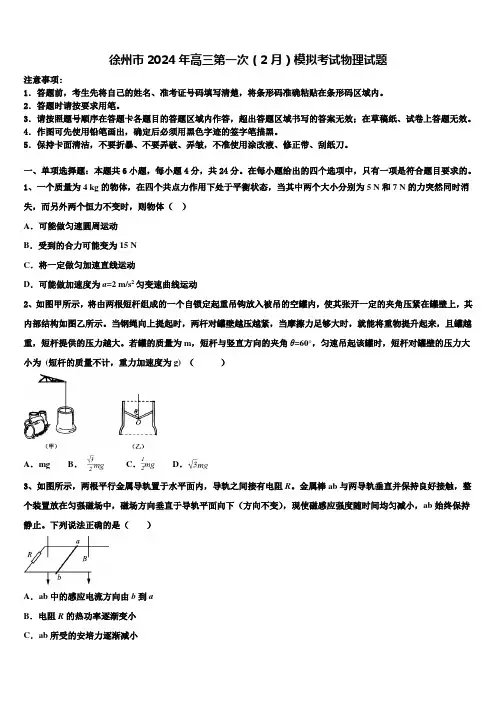 徐州市 2024 年高三第一次（2 月）模拟考试物理试题
注意事项：
1．答题前，考生先将自己的姓名、准考证号码填写清楚，将条形码准确粘贴在条形码区域内。
2．答题时请按要求用笔。
3．请按照题号顺序在答题卡各题目的答题区域内作答，超出答题区域书写的答案无效；在草稿纸、试卷上答题无效。
4．作图可先使用铅笔画出，确定后必须用黑色字迹的签字笔描黑。
5．保持卡面清洁，不要折暴、不要弄破、弄皱，不准使用涂改液、修正带、刮纸刀。
一、单项选择题：本题共 6 小题，每小题 4 分，共 24 分。在每小题给出的四个选项中，只有一项是符合题目要求的。
1、一个质量为 4 kg 的物体，在四个共点力作用下处于平衡状态，当其中两个大小分别为 5 N 和 7 N 的力突然同时消
失，而另外两个恒力不变时，则物体（ ）
A．可能做匀速圆周运动
B．受到的合力可能变为 15 N
C．将一定做匀加速直线运动
D．可能做加速度为 a=2 m/s² 匀变速曲线运动
2、如图甲所示，将由两根短杆组成的一个自锁定起重吊钩放入被吊的空罐内，使其张开一定的夹角压紧在罐壁上，其
内部结构如图乙所示。当钢绳向上提起时，两杆对罐壁越压越紧，当摩擦力足够大时，就能将重物提升起来，且罐越
重，短杆提供的压力越大。若罐的质量为 m，短杆与竖直方向的夹角 θ=60°，匀速吊起该罐时，短杆对罐壁的压力大
小为（短杆的质量不计，重力加速度为 g）（ ）
θ
O
（甲） （乙）
A．mg B．√3/2 mg C．1/2 mg D．√3mg
3、如图所示，两根平行金属导轨置于水平面内，导轨之间接有电阻 R。金属棒 ab 与两导轨垂直并保持良好接触，整
个装置放在匀强磁场中，磁场方向垂直于导轨平面向下（方向不变），现使磁感应强度随时间均匀减小，ab 始终保持
静止。下列说法正确的是（ ）
a
R
B
b
A．ab 中的感应电流方向由 b 到 a
B．电阻 R 的热功率逐渐变小
C．ab 所受的安培力逐渐减小